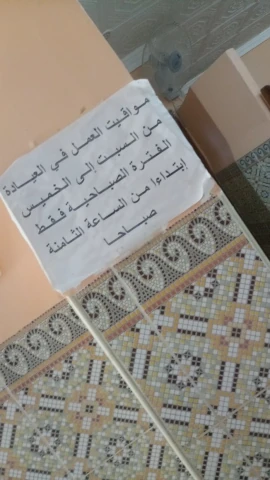 مواقيت العمل في العيادة
من السبت إلى الخميس
الفترة الصباحية فقط
إبتداءا من الساعة الثامنة
صباحا